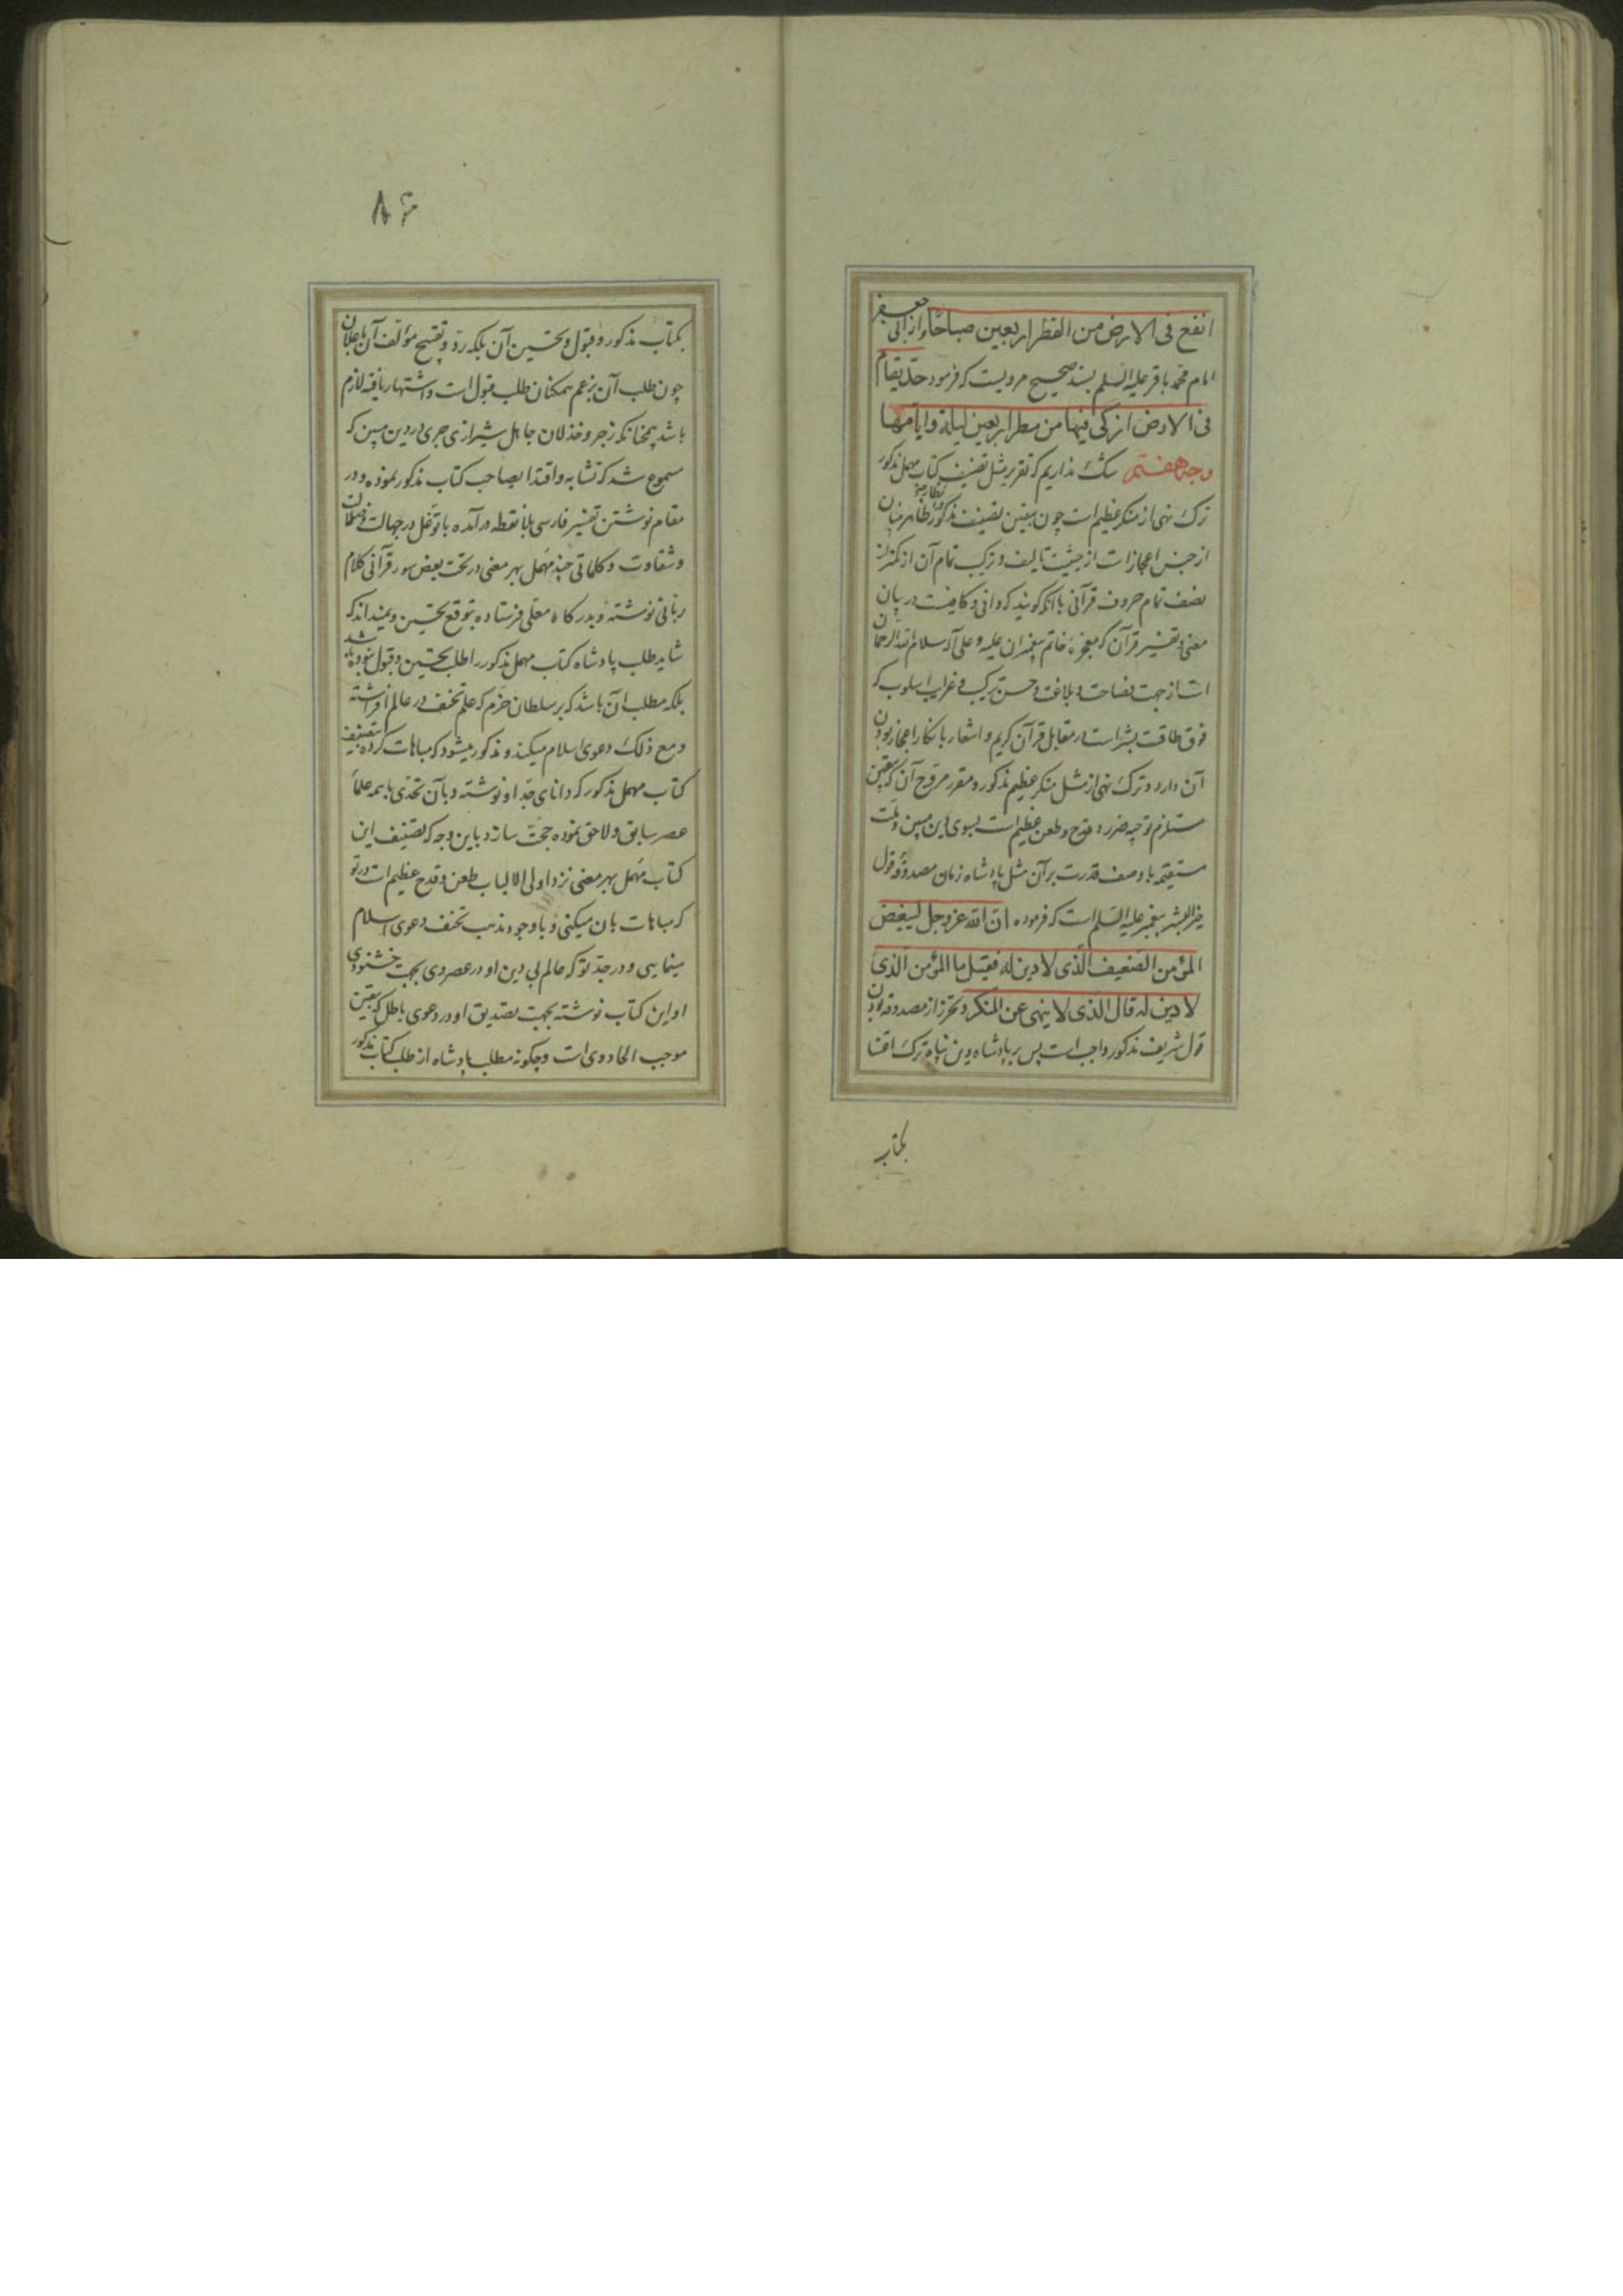 انفع فی الارض من القطر اربعین صباحًا و از ابی جعفر
امام محمد باقر علیه السلم بسند صحیح مرویست که فرمود حدّ یقام
فی الارض ازکی فیها من مطر اربعین لیلة و ایّامها
وجه هفتم شک نداریم که تقریر مثل تصنیف کتاب مهمل مذکور
ترک نهی از منکر عظیم است چون بیقین تصنیف مذکور
از جنس اعجاز است از حیثیت تالیف و ترکیب تمام آن از کمتر از
نصف تمام حروف قرآنی با انکه گویند که وافی و کافیست در بیان
معنی و تفسیر قرآن که معجزه خاتم پیغمبران علیه و علی آله سلام الله الرحمان
است از جهت فصاحت و بلاغت و حسن ترکیب و غرابت اسلوب که
فوق طاقت بشر است در مقابل قرآن کریم و اشعار بانکار اعجاز بودن
آن دارد و ترک نهی از مثل منکر عظیم مذکور و مقرر مروّج آن که بیقین
مستلزم توجیه ضرر و قدح و طعن عظیم است بسوی دین مبین و ملت
مستقیمه با وصف قدرت بر آن مثل پادشاه زمان مصدوقه قول
خیر البشر پیغمبر علیه السلم است که فرموده انّ الله عزّ و جل لیبغض
المؤمن الضعیف الّذی لا دین له فقیل ما المؤمن الّذی
لا دین له قال الذی لا ینهی عن المنکر و تحرز از مصدوقه بودن
قول شریف مذکور واجب است پس بر پادشاه دین پناه ترک اعتنا
بکتاب
۸۶
بکتاب مذکور و قبول و تحسین آن بلکه ردّ و تقبیح مؤلف آن باعلان
چون طلب آن بزعم همکنان طلب قبول است و اشتهار یافته لازم
باشد همچنانکه زجر و خذلان جاهل شیرازی جری در دین مبین که
مسموع شد که تشابه و اقتدا بصاحب کتاب مذکور نموده و در
مقام نوشتن تفسیر فارسی بلا نقطه در آمده با توغل در جهالت و ضلالت
و شقاوت و کلماتی چند مهمل بیمعنی در تحت بعض سور قرآنی کلام
ربانی نوشته و بدرکاه معلّی فرستاده بتوقع تحسین و نمیداند که
شاید طلب پادشاه کتاب مهمل مذکور را طلب تحسین و قبول نبوده باشد
بلکه مطلب آن باشد که بر سلطان خرّم که علم تحنف در عالم افراشته
و مع ذلک دعوی اسلام میکند و مذکور میشود که مباهات کرده بتصنیف
کتاب مهمل مذکور که دانای جدّ او نوشته و بآن تحدّی با همه علماء
عصر سابق و لاحق نموده حجّت سازد باین وجه که تصنیف این
کتاب مهمل بیمعنی نزد اولی الالباب طعن و قدح عظیم است در تو
که مباهات بان میکنی و با وجود مذهب تحنف دعوی اسلام
مینمایی و در جدّ تو که عالم بی دین او در عصر وی بجهت خشنودی
او این کتاب نوشته بجهت تصدیق او در دعوی باطل که بیقین
موجب الحاد وی است و چکونه مطلب پادشاه از طلب کتاب مذکور